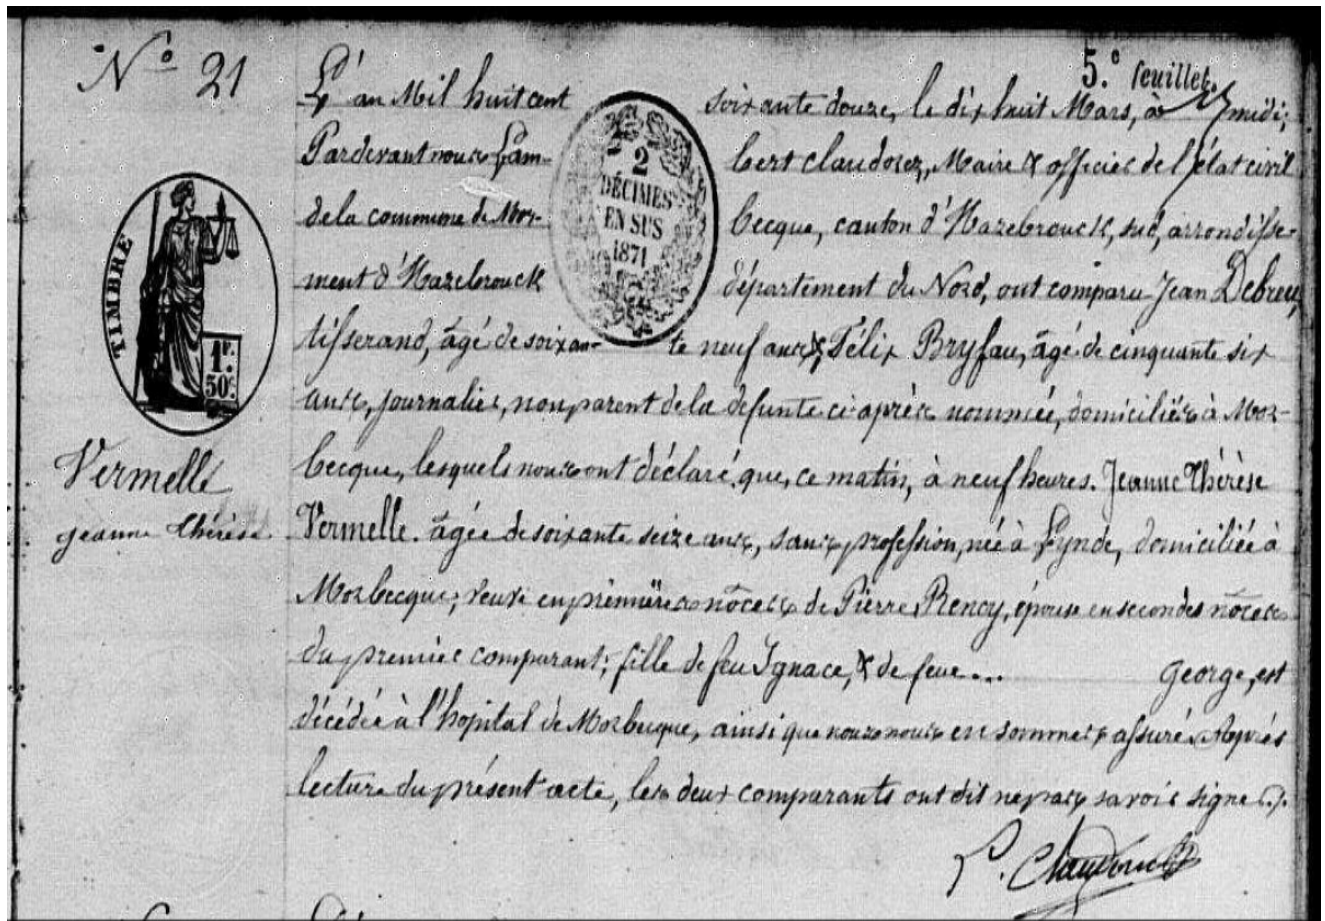 N.º 21
5.º feuillet.
L'an Mil huit cent soixante douze, le dix huit Mars, à midi;
Pardevant nous Lam- bert Claudorez, Maire & officier de l'état civil
2
DÉCIMES
EN SUS
1871
de la commune de Mor- becque, canton d'Hazebrouck, sud, arrondisse-
ment d'Hazebrouck département du Nord, ont comparu Jean Debreu,
TIMBRE
1F.
50c.
tisserand, âgé de soixan- te neuf ans & Félix Bryfau, âgé de cinquante six
ans, journalier, non parent de la defunte ci-après nommée, domiciliés à Mor-
Vermelle
Jeanne Thérèse
becque, lesquels nous ont déclaré que, ce matin, à neuf heures. Jeanne Thérèse
Vermelle. âgée de soixante seize ans, sans profession, née à Lynde, domiciliée à
Morbecque, veuve en premières nôces de Pierre Rency, épouse en secondes nôces
du premier comparant; fille de feu Ignace, & de feue ... George, est
décédée à l'hopital de Morbecque, ainsi que nous nous en sommes assuré. Après
lecture du présent acte, les deux comparants ont dit ne pas savoir signer.